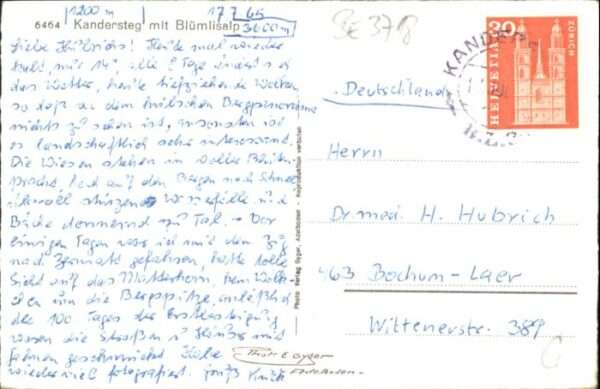 1200 m
17.7.65
6464 Kandersteg mit Blümlisalp
3600 m
Liebe Hubrichs! Heute mal wieder
kalt, mit 14°. alle 2 Tage ändert sich
das Wetter, heute tiefziehende Wolken
so daß an dem hübschen Bergpanorama
nichts zu sehen ist, ansonsten ist
es landschaftlich sehr interessant.
Die Wiesen stehen in voller Blüten-
pracht, auf den Bergen noch Schnee
überall stürzende Wasserfälle und
Bäche donnernd zu Tal. - Vor
einigen Tagen war ich mit dem Zug
nach Zermatt gefahren, hatte tolle
Sicht auf das Matterhorn,
um die Bergspitze, anläßlich
der 100 Tages der Erstbesteigung
waren die Straßen u. Häuser mit
Fahnen geschmückt. Habe
wieder viel fotografiert.
BE 378
KANDERS
HELVETIA
20
ZÜRICH
Deutschland
Herrn
Dr. med. H. Hubrich
463 Bochum-Laer
Wittenerstr. 389
Photo Verlag Gyger, Adelboden - Reproduktion verboten
Photo E. Gyger
Adelboden